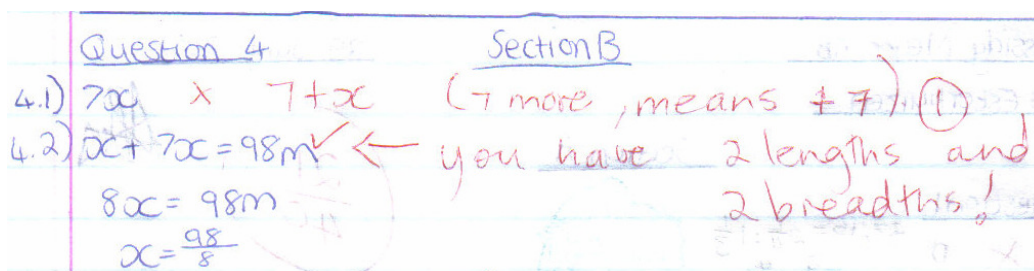 Question 4 Section B
4.1) 7x × 7+x (7 more, means +7) ①
4.2) x + 7x = 98m ✓ ← you have 2 lengths and
8x = 98m 2 breadths!
x = 98/8